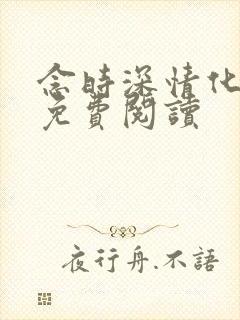 念時深情化
免費閱讀
夜行舟.不語